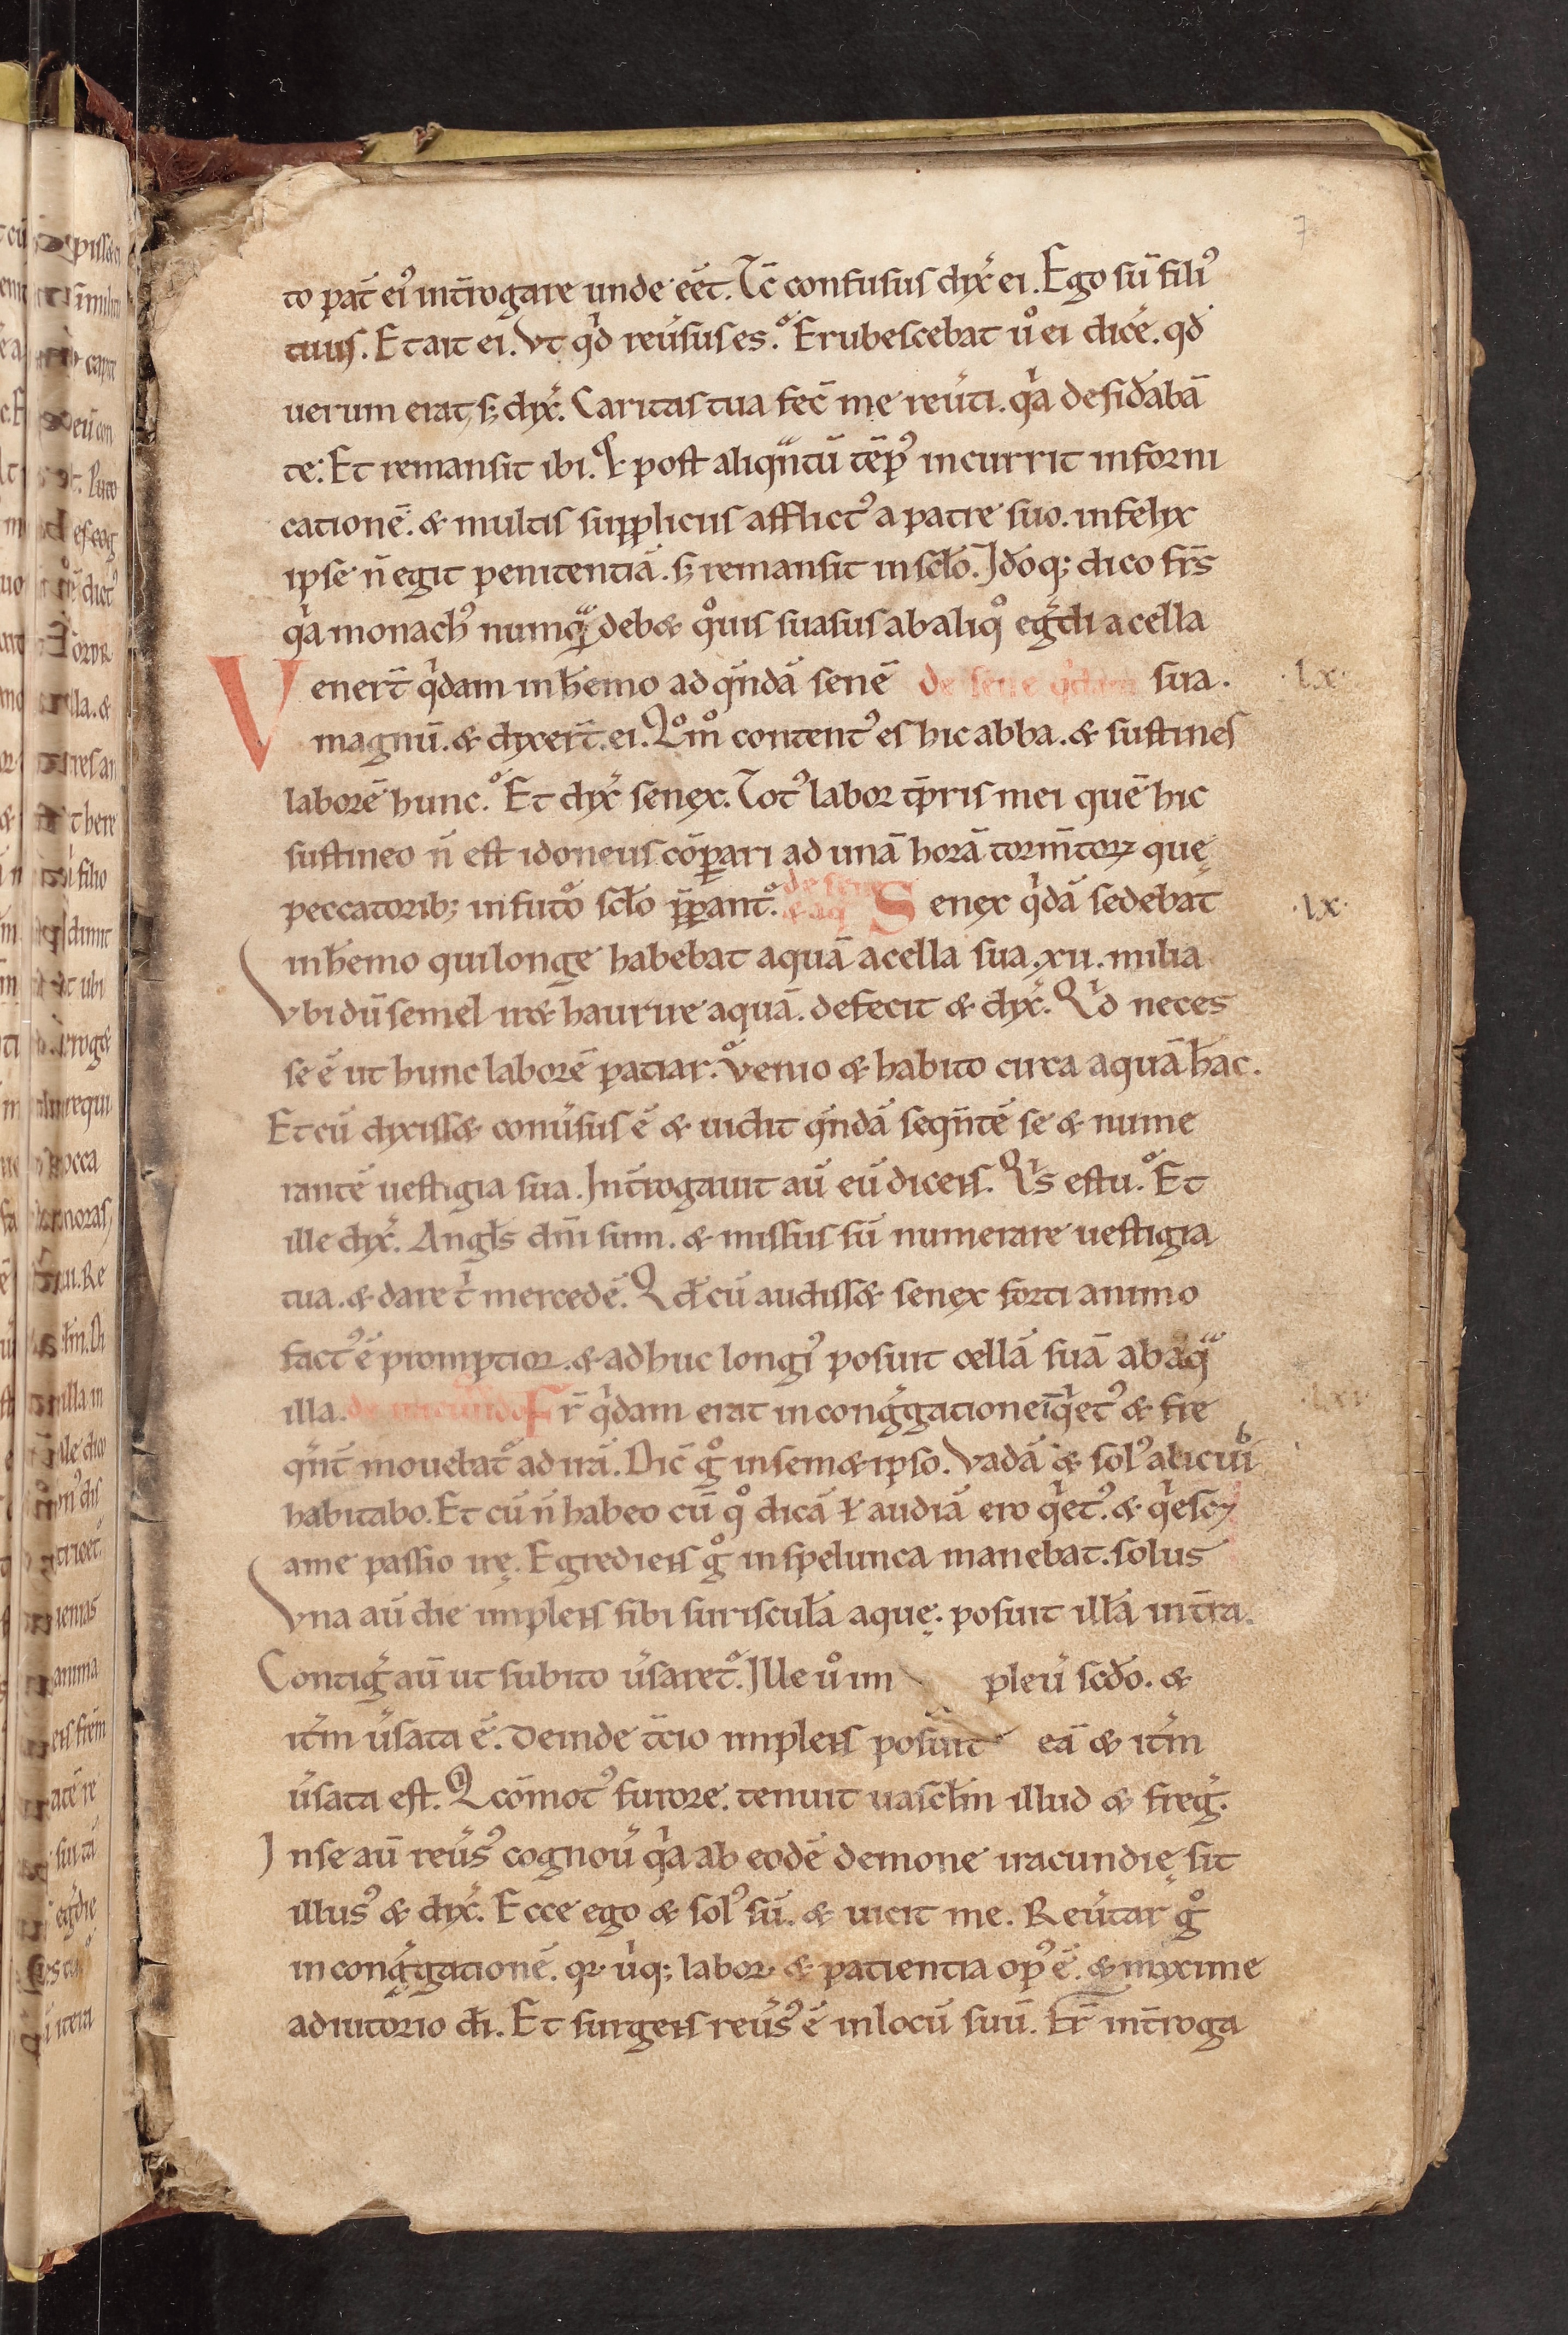 7
to pat̄ ei᾽ int̄rogare unde eēt. Tc̄ confusus dix̄ ei. Ego sū fili᾽
tuus. Et ait ei. Vt qͥd reūsus es. Erubescebat uͦ ei dicē. qd̄
uerum erat, s; dix̄. Caritas tua fec̄ me reūti. qͥa desid̄abā
te: Et remansit ibi. Q̇ post aliqᵃntū tēp᾽ incurrit in forni
catione̅. & multis suppliciis afflict᾽ a patre suo. infelix
ipse n̄ egit penitentiā. s; remansit in sclo̅. Ido̅q; dico fr̄s
qͥa monach᾽ numqᵃ deb& qͦuis suasus ab aliqͦ egͬdi a cella
Venert̄ qͥdam in h̄emo ad qᵉndā senē de sene qͥdam sua. ·lx·
magnū. & dixert̄ ei. Qͦmͦ content᾽ es hic abba. & sustines
laborē hunc. Et dix̄ senex. Tot᾽ labor tp̄ris mei quē hic
sustineo n̄ est idoneus cōꝑari ad unā horā torm̄toꝝ quę
peccatorib; in futoͦ sclo̅ p̄ꝑant᾽. de sene & aq Senex qͥdā sedebat ·lx·
in h̄emo qui longe habebat aquā a cella sua .xii. milia
Vbi dū semel ir& haurire aquā. defecit & dix̄. Qͥd neces
se ē ut hunc laborē patiar. Venio & habito circa aquā h̄ac.
Et cū dixiss& conūsus ē & uidit qᵉndā seqn̄tē se & nume
rantē uestigia sua. Int̄rogauit aū eū dicens. Qͥs es tu. Et
ille dix̄. Angl̄s dn̄i sum. & missus sū numerare uestigia
tua. & dare tͥ mercedē. Qd̄ cū audiss& senex forti animo
fact᾽ ē promptior. & adhuc longi᾽ posuit cellā suā ab aqᵃ
illa. de iracundo Fr̄ qͥdam erat in congͬgatione īqͥet᾽ & fre
qᵉnt̄ mouebat᾽ ad irā. Dic̄ gͦ in sem&ipso. Vadā & sol᾽ alicubi
habitabo. Et cū n̄ habeo cū qͦ dicā ł audiā ero qͥet᾽. & qͥesc&
a me passio irę. Egrediens gͦ in spelunca manebat solus
Vna aū die implens sibi suriscul̄a aquę. posuit illā in t̄ra.
Contigͥ aū ut subito ūsaret᾽. Ille uͦ im pleū scd̄o. &
itm̄ ūsata ē. Deinde t̄cio implens posuit eā & itm̄
ūsata est. Q̇ cōmot᾽ furore. tenuit uascl̄m illud & fregͥ.
In se aū reūs᾽ cognoū qͥa ab eodē demone iracundię sit
illus᾽ & dix̄. Ecce ego & sol᾽ sū. & uicit me. Reūtar gͦ
in congͬgationē. qꝛ uͥq; labor & patientia op᾽ ē. & maxime
adiutorio di̅. Et surgens reūs᾽ ē in locū suū. Fr̄ int̄roga